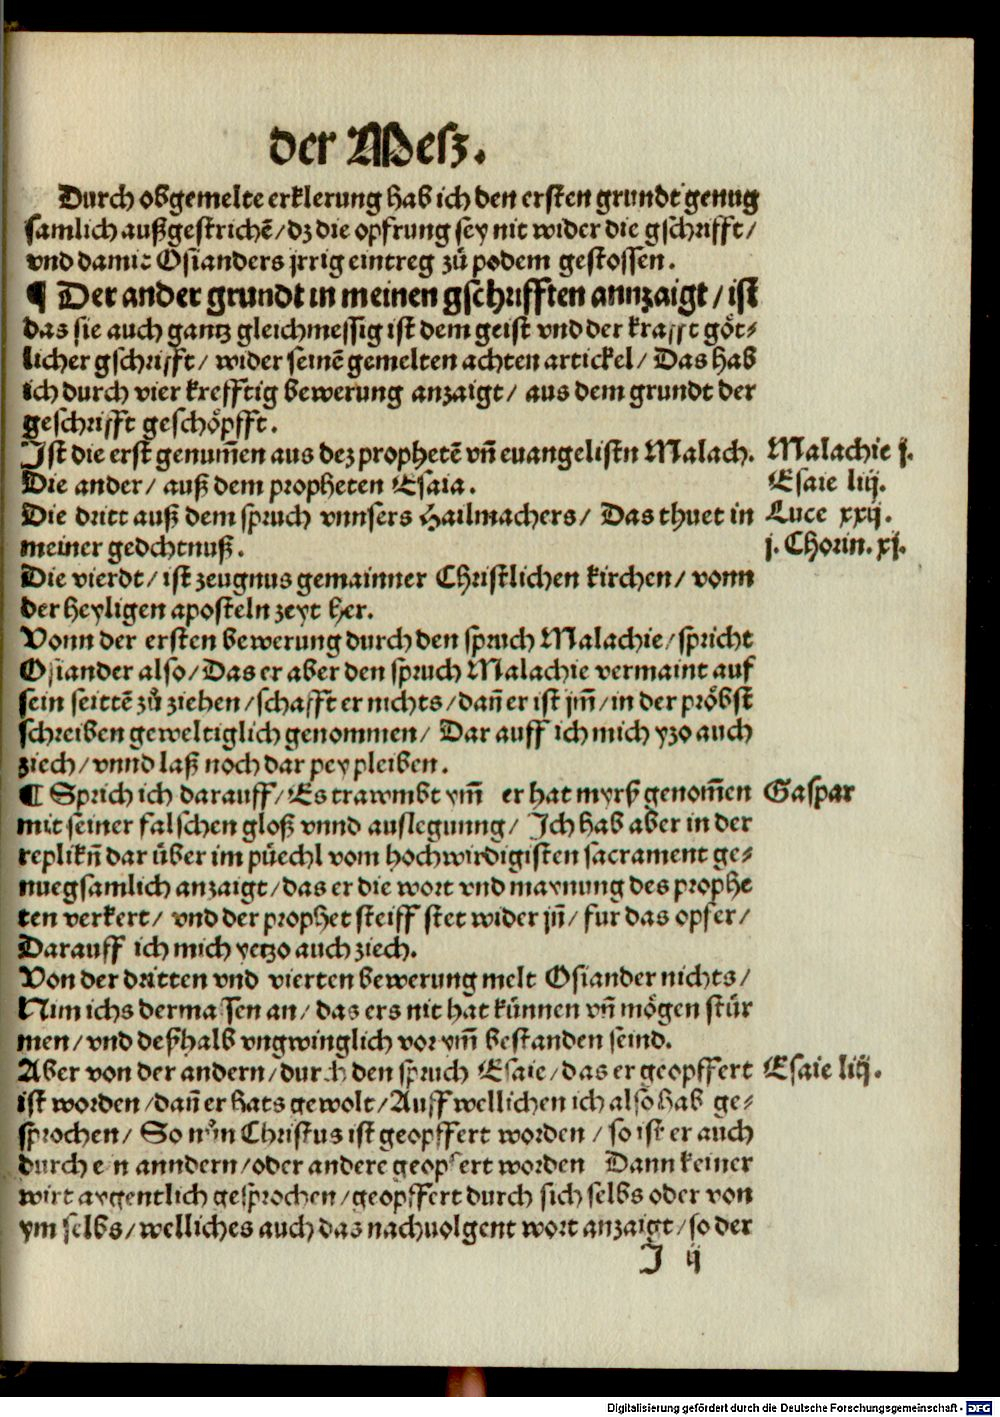 der Mesz.
Durch obgemelte erklerung hab ich den ersten grundt genug
samlich außgestrichē/ dz die opfrung sey nit wider die gschrifft/
vnd damit Osianders jrrig eintreg zů podem gestossen.
¶ Der ander grundt in meinen gschrifften annzaigt/ ist
das sie auch gantz gleichmessig ist dem geist vnd der krafft göt⸗
licher gschrifft/ wider seinē gemelten achten artickel/ Das hab
ich durch vier krefftig bewerung anzaigt/ aus dem grundt der
geschrifft geschöpfft.
Ist die erst genum̄en aus dez prophetē vn̄ euangelistn Malach. Malachie j.
Die ander/ auß dem propheten Esaia. Esaie liij.
Die dritt auß dem spruch vnnsers Hailmachers/ Das thuet in Luce xxij.
meiner gedchtnuß. j. Chorin. xj.
Die vierdt/ ist zeugnus gemainner Christlichen kirchen/ vonn
der heyligen aposteln zeyt her.
Vonn der ersten bewerung durch den spruch Malachie/ spricht
Osiander also/ Das er aber den spruch Malachie vermaint auf
sein seittē zů ziehen/ schafft er nichts/ dan̄ er ist jm̄/ in der pröbst
schreiben geweltiglich genommen/ Dar auff ich mich yzo auch
ziech/ vnnd laß noch dar pey pleiben.
¶ Sprich ich darauff/ Es trawmbt ym̄ er hat myrß genom̄en Gaspar
mit seiner falschen gloß vnnd auslegunng/ Ich hab aber in der
replikn̄ dar über im püechl vom hochwirdigisten sacrament ge⸗
nuegsamlich anzaigt/ das er die wort vnd maynung des prophe
ten verkert/ vnd der prophet steiff stet wider jn̄/ fur das opfer/
Darauff ich mich yetzo auch ziech.
Von der dritten vnd vierten bewerung melt Osiander nichts/
Nim ichs dermassen an/ das ers nit hat künnen vn̄ mögen stür
men/ vnd deßhalb vngwinglich vor ym̄ bestanden seind.
Aber von der andern/ durch den spruch Esaie/ das er geopffert Esaie liij.
ist worden/ dan̄ er hats gewolt/ Auff wellichen ich also hab ge⸗
sprochen/ So nůn Christus ist geopffert worden/ so ist er auch
durch ein anndern/ oder andere geopfert worden Dann keiner
wirt aygentlich gesprochen/ geopffert durch sich selbs oder von
ym selbs/ welliches auch das nachuolgent wort anzaigt/ so der
I ij
Digitalisierung gefördert durch die Deutsche Forschungsgemeinschaft - DFG